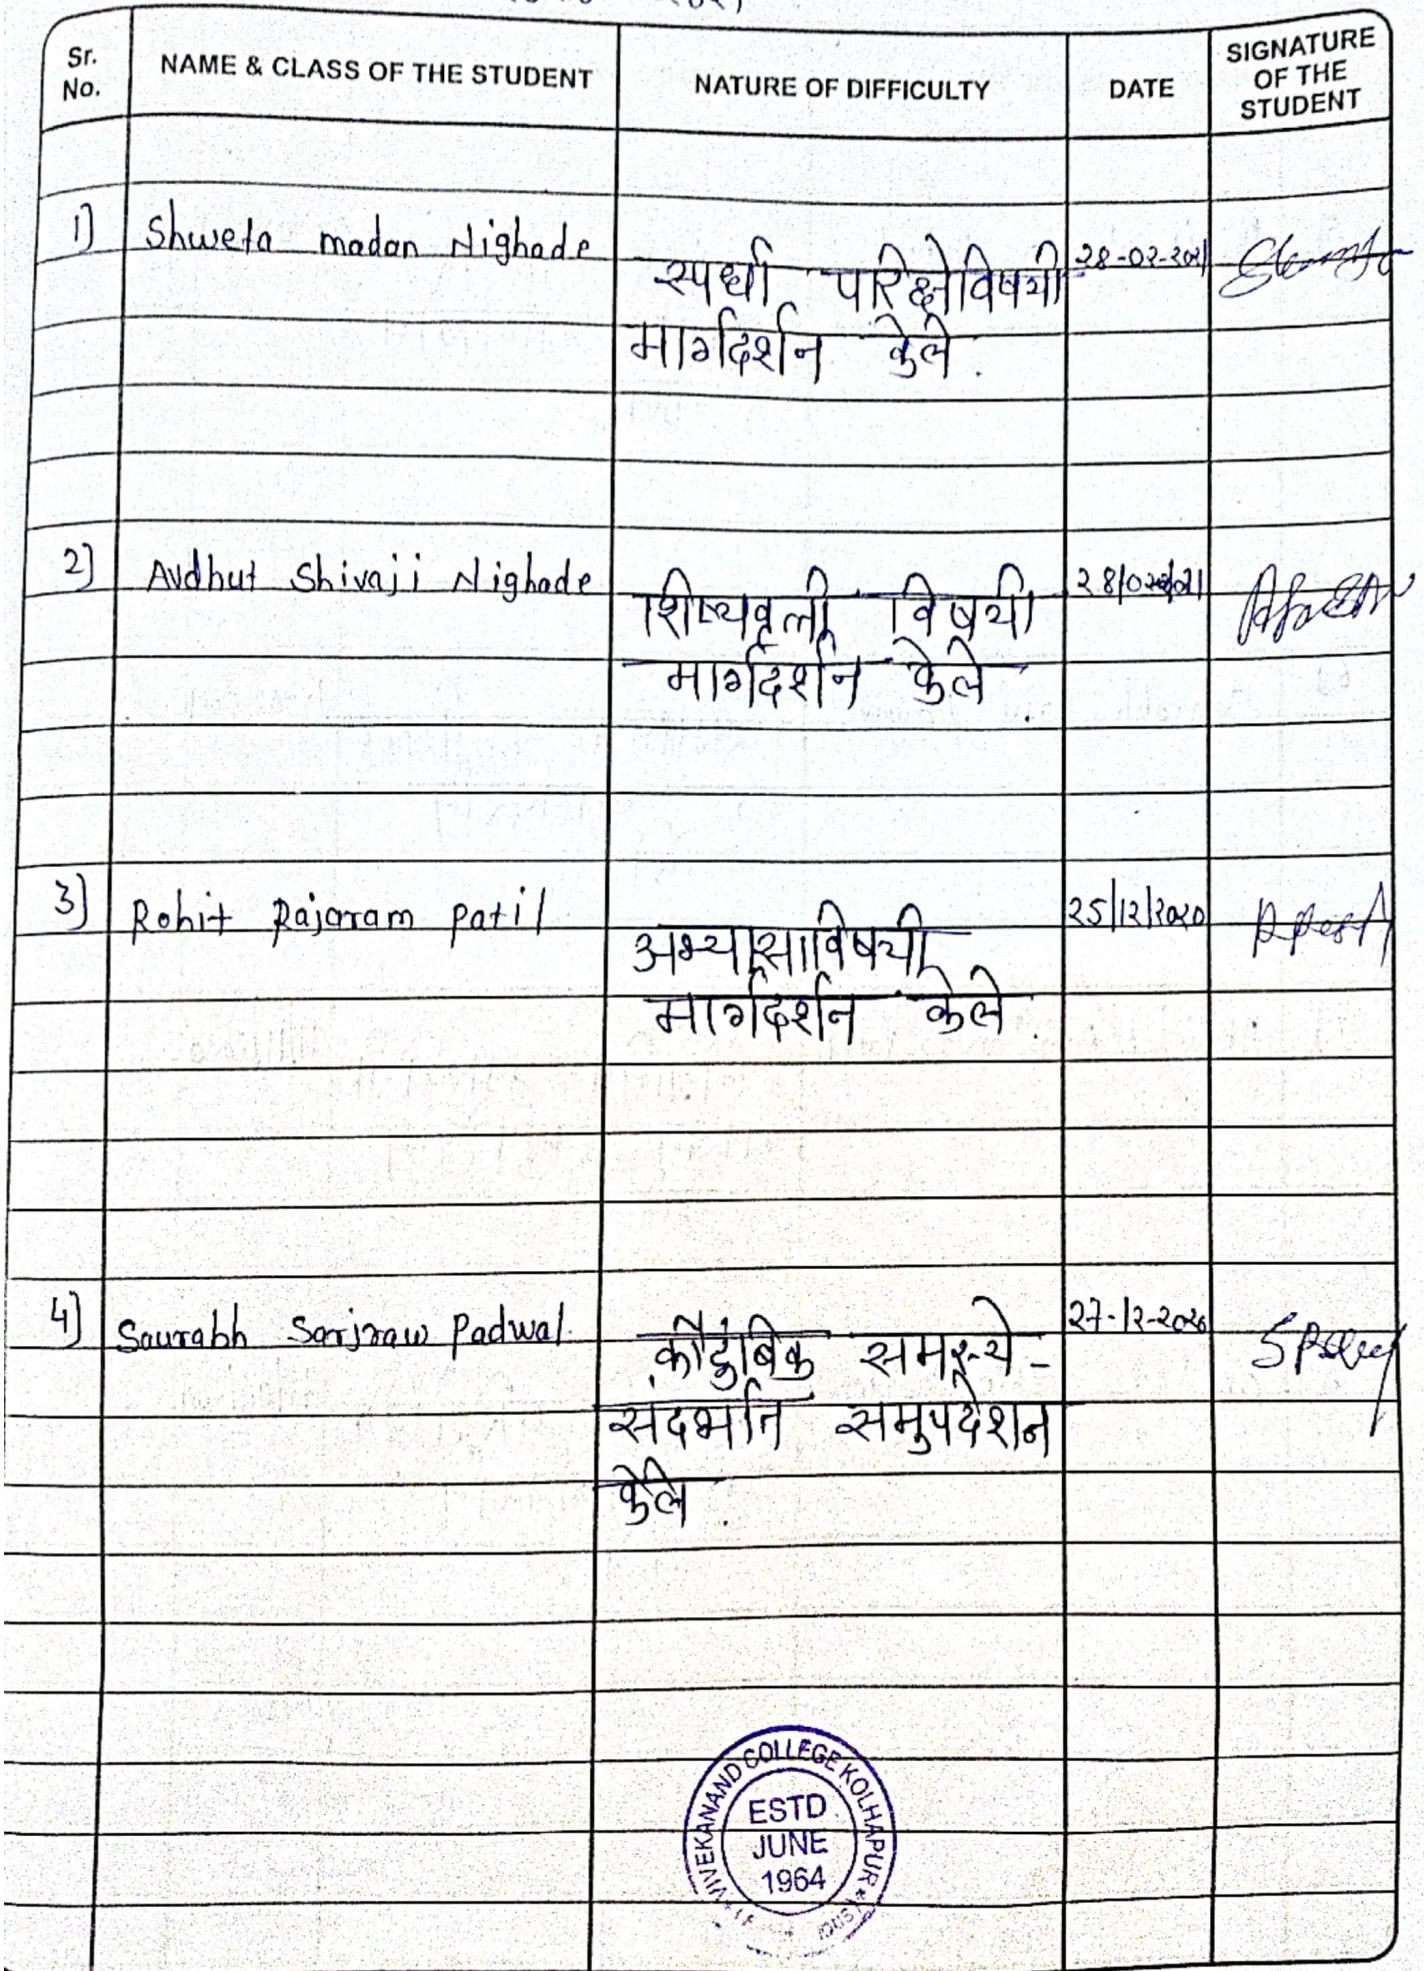 Sr. No.
NAME & CLASS OF THE STUDENT
NATURE OF DIFFICULTY
DATE
SIGNATURE OF THE STUDENT
1) Shweta madan Nighade
स्पर्धा परिक्षेविषयी
मार्गदर्शन केले.
28-02-2021
2) Avdhut Shivaji Nighade
शिष्यवृत्ती विषयी
मार्गदर्शन केले.
3) Rohit Rajaram patil
अभ्यासाविषयी
मार्गदर्शन केले.
25/12/2020
4) Saurabh Sarjraw Padwal.
कौटुंबिक समस्ये-
संदर्भात समुपदेशन
केले.
27-12-2020
VIVEKANAND COLLEGE KOLHAPUR
ESTD
JUNE
1964